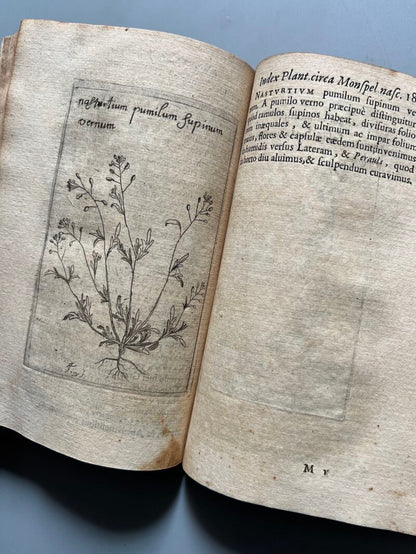 nasturtium pumilum supinum
vernum
Index Plant. circa Monspel. nasc. 18
NASTURTIUM pumilum supinum ve
num. A pumilo verno præcipuè distinguitur
ramulos supinos habeat, divisuras folio
inæquales, & ultimum ac impar folium
flores & capsulæ eædem sunt; invenimus
versus Lateram, & Perauls, quod
horto diu aluimus, & sculpendum curavimus.
M v